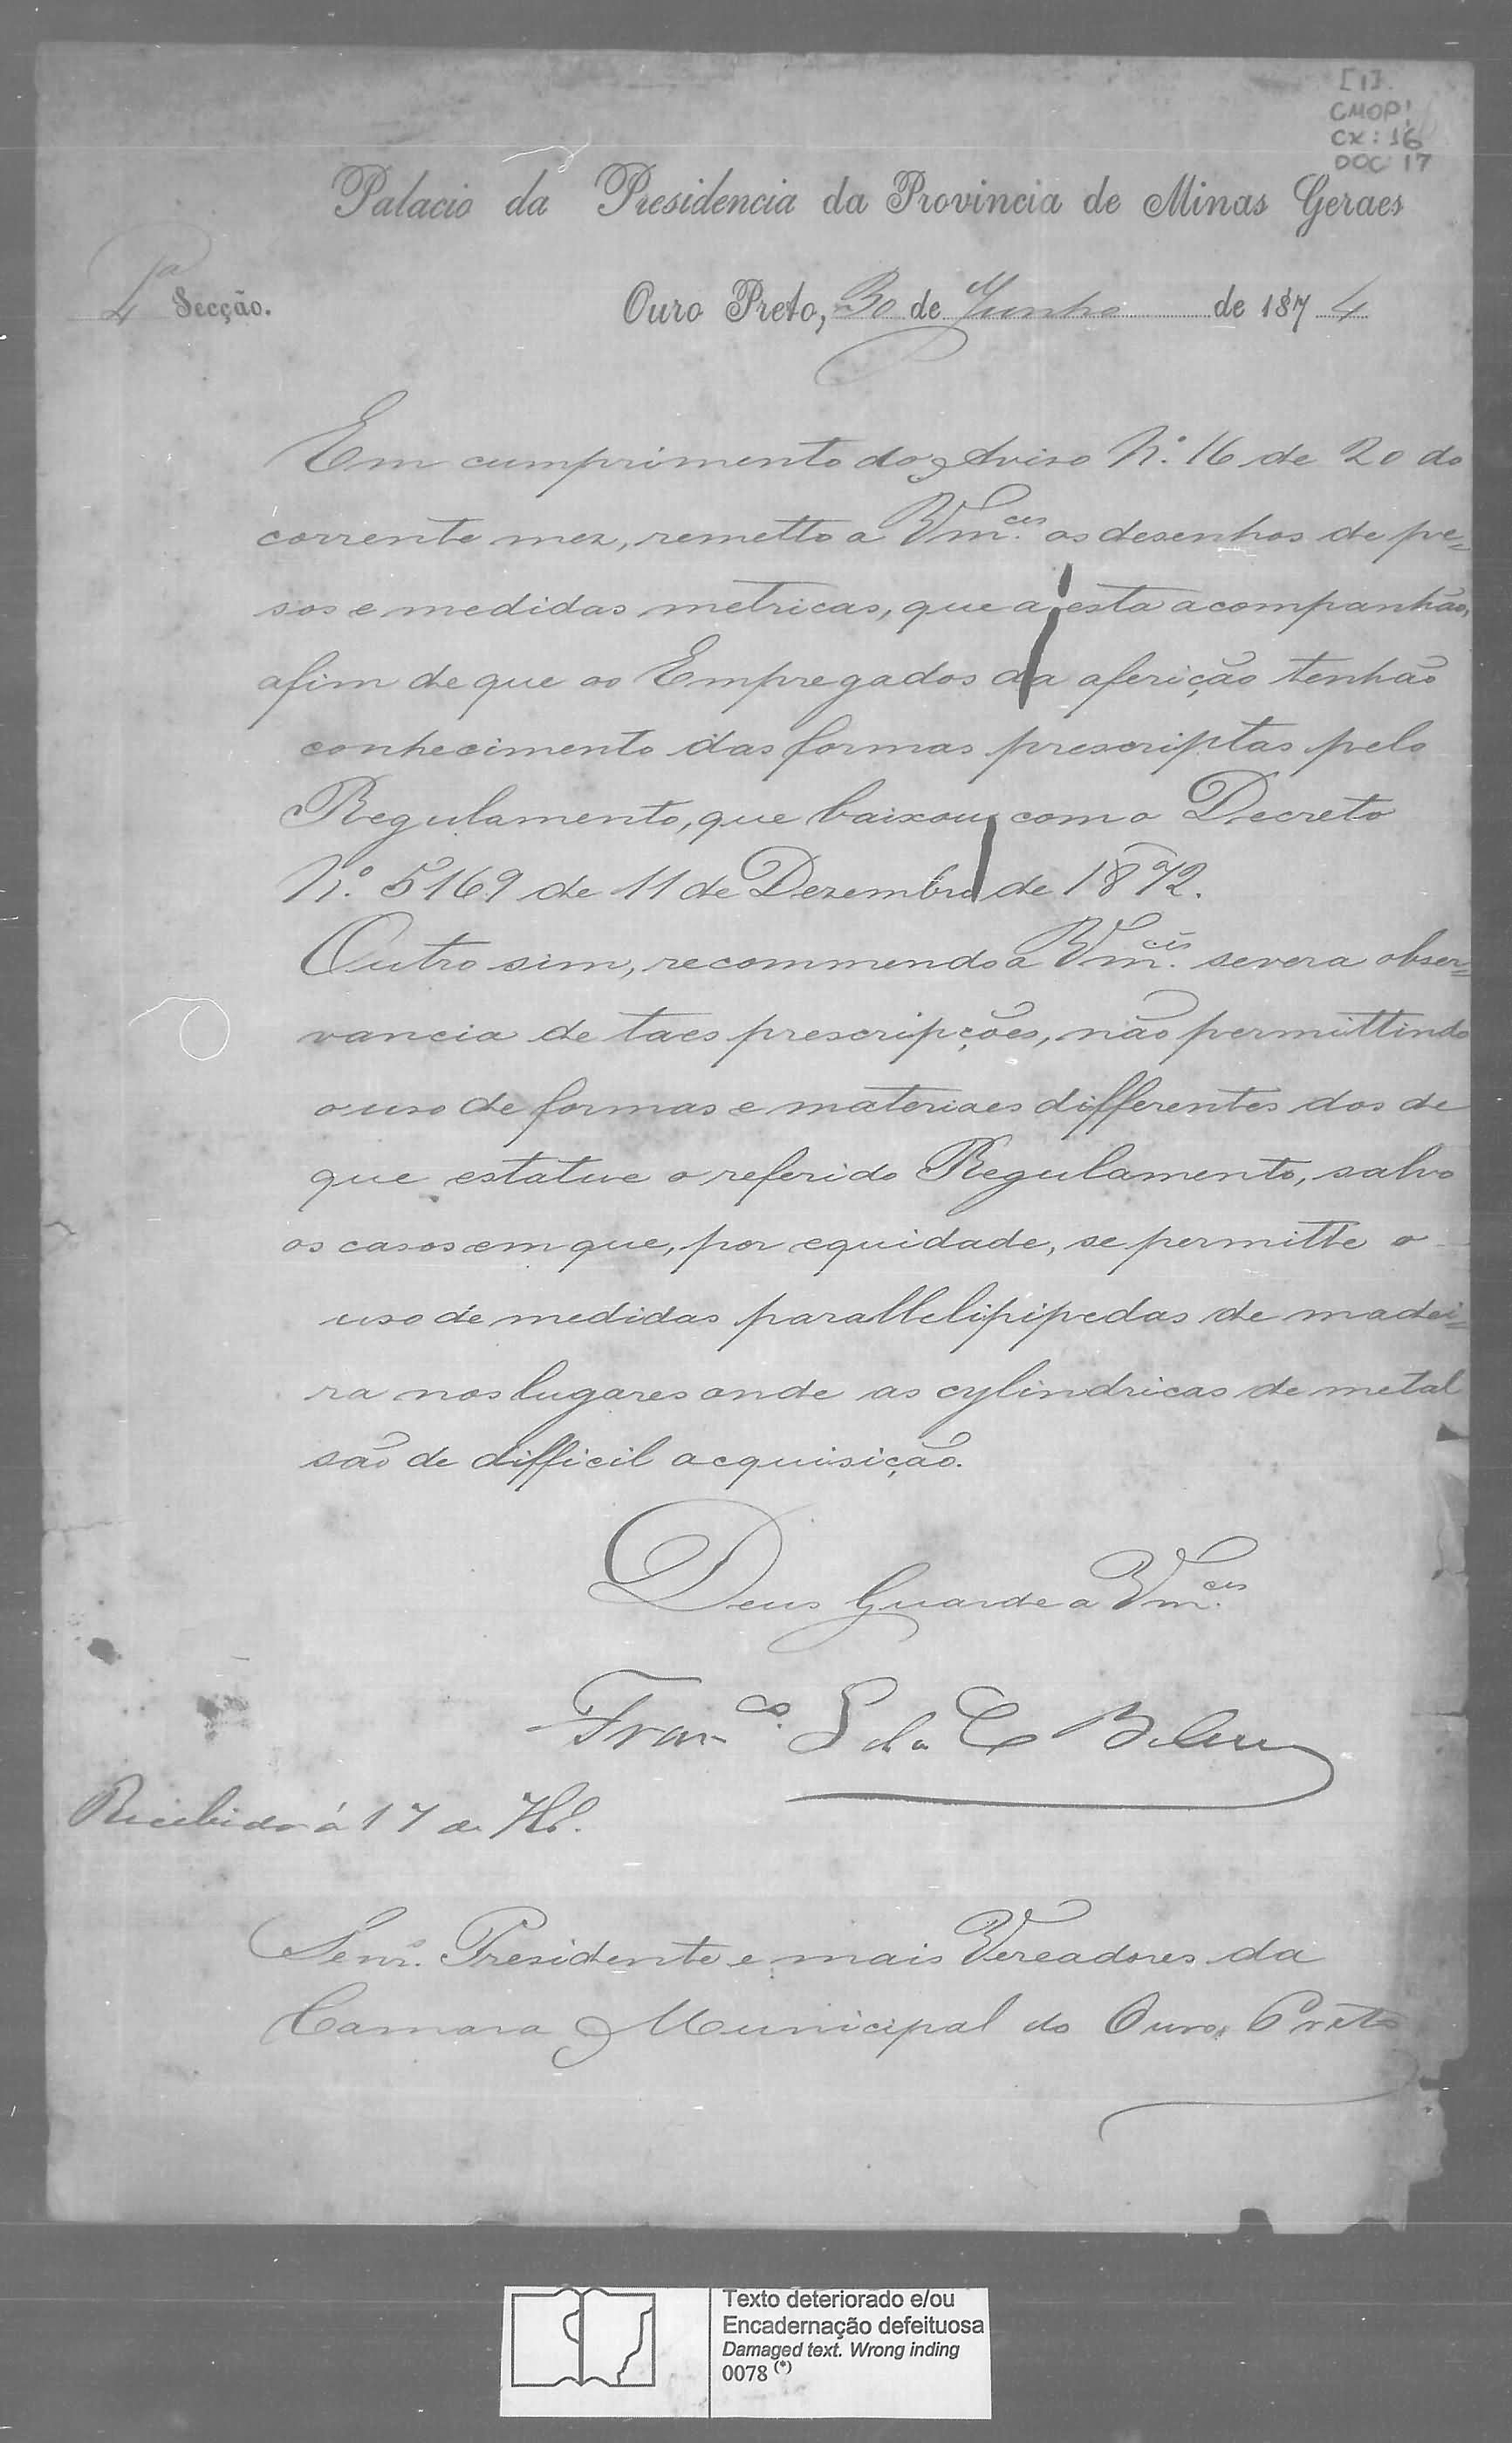 [1].
CMOP!
CX: 16
DOC: 17
Palacio da Presidencia da Provincia de Minas Geraes
4ª Secção.
Ouro Preto, 30 de Junho de 1874
Em cumprimento do Aviso N.º 16 de 20 do
corrente mez, remetto a Vm.ces os desenhos de pe=
sos e medidas metricas, que a esta acompanhão,
afim de que os Empregados da aferição tenhão
conhecimento das formas prescriptas pelo
Regulamento, que baixou com o Decreto
N.º 5169 de 11 de Dezembro de 1872.
Outro sim, recommendo a Vm.ces severa obser=
vancia de taes prescripções, não permittindo
o uso de formas e materiaes differentes dos de
que estatue o referido Regulamento, salvo
os casos em que, por equidade, se permitte o
uso de medidas parallelipipedas de madei=
ra nos lugares onde as cylindricas de metal
são de difficil acquisição.
Deus Guarde a Vm.ces
Fran.co
Recebido á 17 de
Senr. Presidente e mais Vereadores da
Camara Municipal do Ouro Preto
Texto deteriorado e/ou
Encadernação defeituosa
Damaged text. Wrong inding
0078 (*)